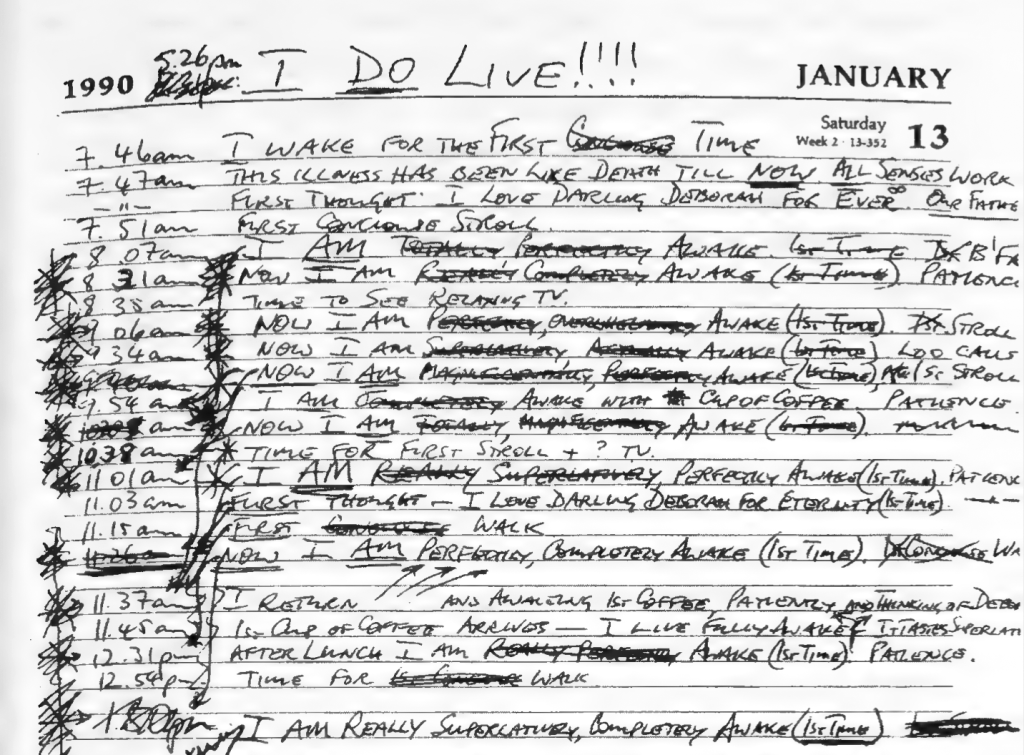 5.26pm I DO LIVE!!!!
1990 JANUARY
Saturday
Week 2 · 13-352 13
7.46am I WAKE FOR THE FIRST TIME
7.47am THIS ILLNESS HAS BEEN LIKE DEATH TILL NOW ALL SENSES WORK
-"- FIRST THOUGHT: I LOVE DARLING DEBORAH FOR EVER OUR FATHE
7.51am FIRST STROLL.
8.07am I AM TOTALLY PERFECTLY AWAKE 1st TIME B'FA
8 31am NOW I AM REALLY COMPLETELY AWAKE (1st TIME) PATIENC
8 35am TIME TO SEE RELAXING TV.
9 06am NOW I AM PERFECTLY, OVERWHELMINGLY AWAKE (1st TIME). 1st STROLL
9 34am NOW I AM SUPERLATIVELY ACTUALLY AWAKE (1st TIME) LOO CALLS
NOW I AM PERFECTLY AWAKE (1st TIME) 1st STROLL
9.54am I AM COMPLETELY AWAKE WITH CUP OF COFFEE. PATIENCE
am NOW I AM TOTALLY AWAKE (1st TIME).
1038am TIME FOR FIRST STROLL + ? TV.
11 01am I AM REALLY SUPERLATIVELY, PERFECTLY AWAKE (1st TIME). PATIENC
11.03am FIRST THOUGHT — I LOVE DARLING DEBORAH FOR ETERNITY (1st TIME).
11.15am FIRST WALK
11.26am NOW I AM PERFECTLY, COMPLETELY AWAKE (1st TIME). WA
11.37am I RETURN AND AWAITING 1st COFFEE PATIENTLY AND THINKING OF DEBOR
11.45am 1st CUP OF COFFEE ARRIVES — I LIVE FULLY AWAKE IT TASTES SUPERLATI
12.31pm AFTER LUNCH I AM REALLY PERFECTLY AWAKE (1st TIME). PATIENCE.
12.54pm TIME FOR WALK
I AM REALLY SUPERLATIVELY, COMPLETELY AWAKE (1st TIME)